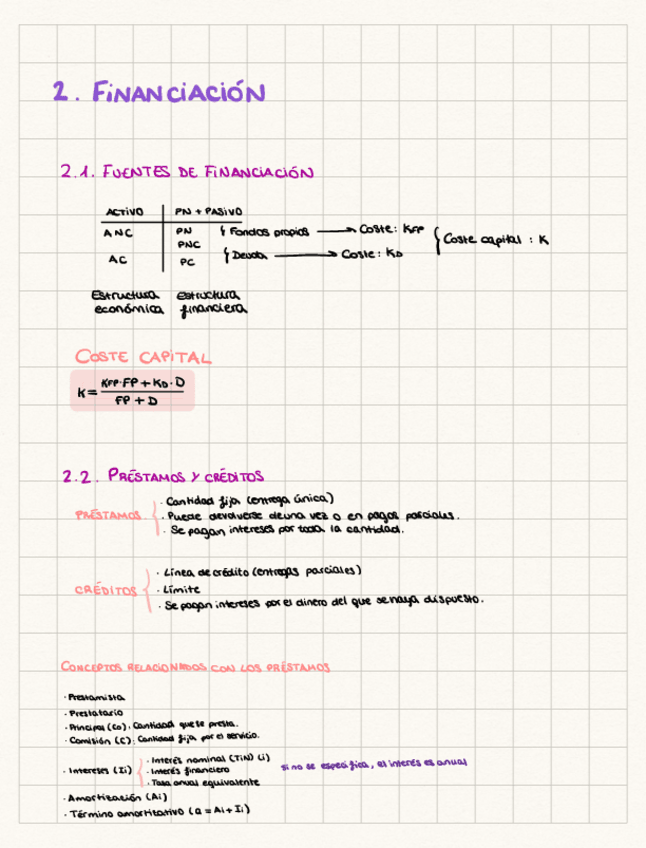 2. FiNANCiACiÓN
2.1. FUENTES DE FiNANCiACiÓN
ACTiVO PN + PASiVO
ANC PN { Fondos propios → Coste: KFP { Coste capital : K
PNC
AC PC { Deuda → Coste: KD
Estructura estructura
económica financiera
COSTE CAPiTAL
K = KFP·FP + KD·D
FP + D
2.2. PRÉSTAMOS Y CRÉDiTOS
PRÉSTAMOS
· Cantidad fija (entrega única)
· Puede devolverse de una vez o en pagos parciales.
· Se pagan intereses por toda la cantidad.
CRÉDiTOS
· Línea de crédito (entregas parciales)
· Límite
· Se pagan intereses por el dinero del que se haya dispuesto.
CONCEPTOS RELACiONADOS CON LOS PRÉSTAMOS
· Prestamista
· Prestatario
· Principal (Co): Cantidad que se presta.
· Comisión (C): Cantidad fija por el servicio.
· Intereses (Ii)
· Interés nominal (TiN) (i)
· Interés financiero
· Tasa anual equivalente
si no se especifica, el interés es anual
· Amortización (Ai)
· Término amortitativo (a = Ai + Ii)